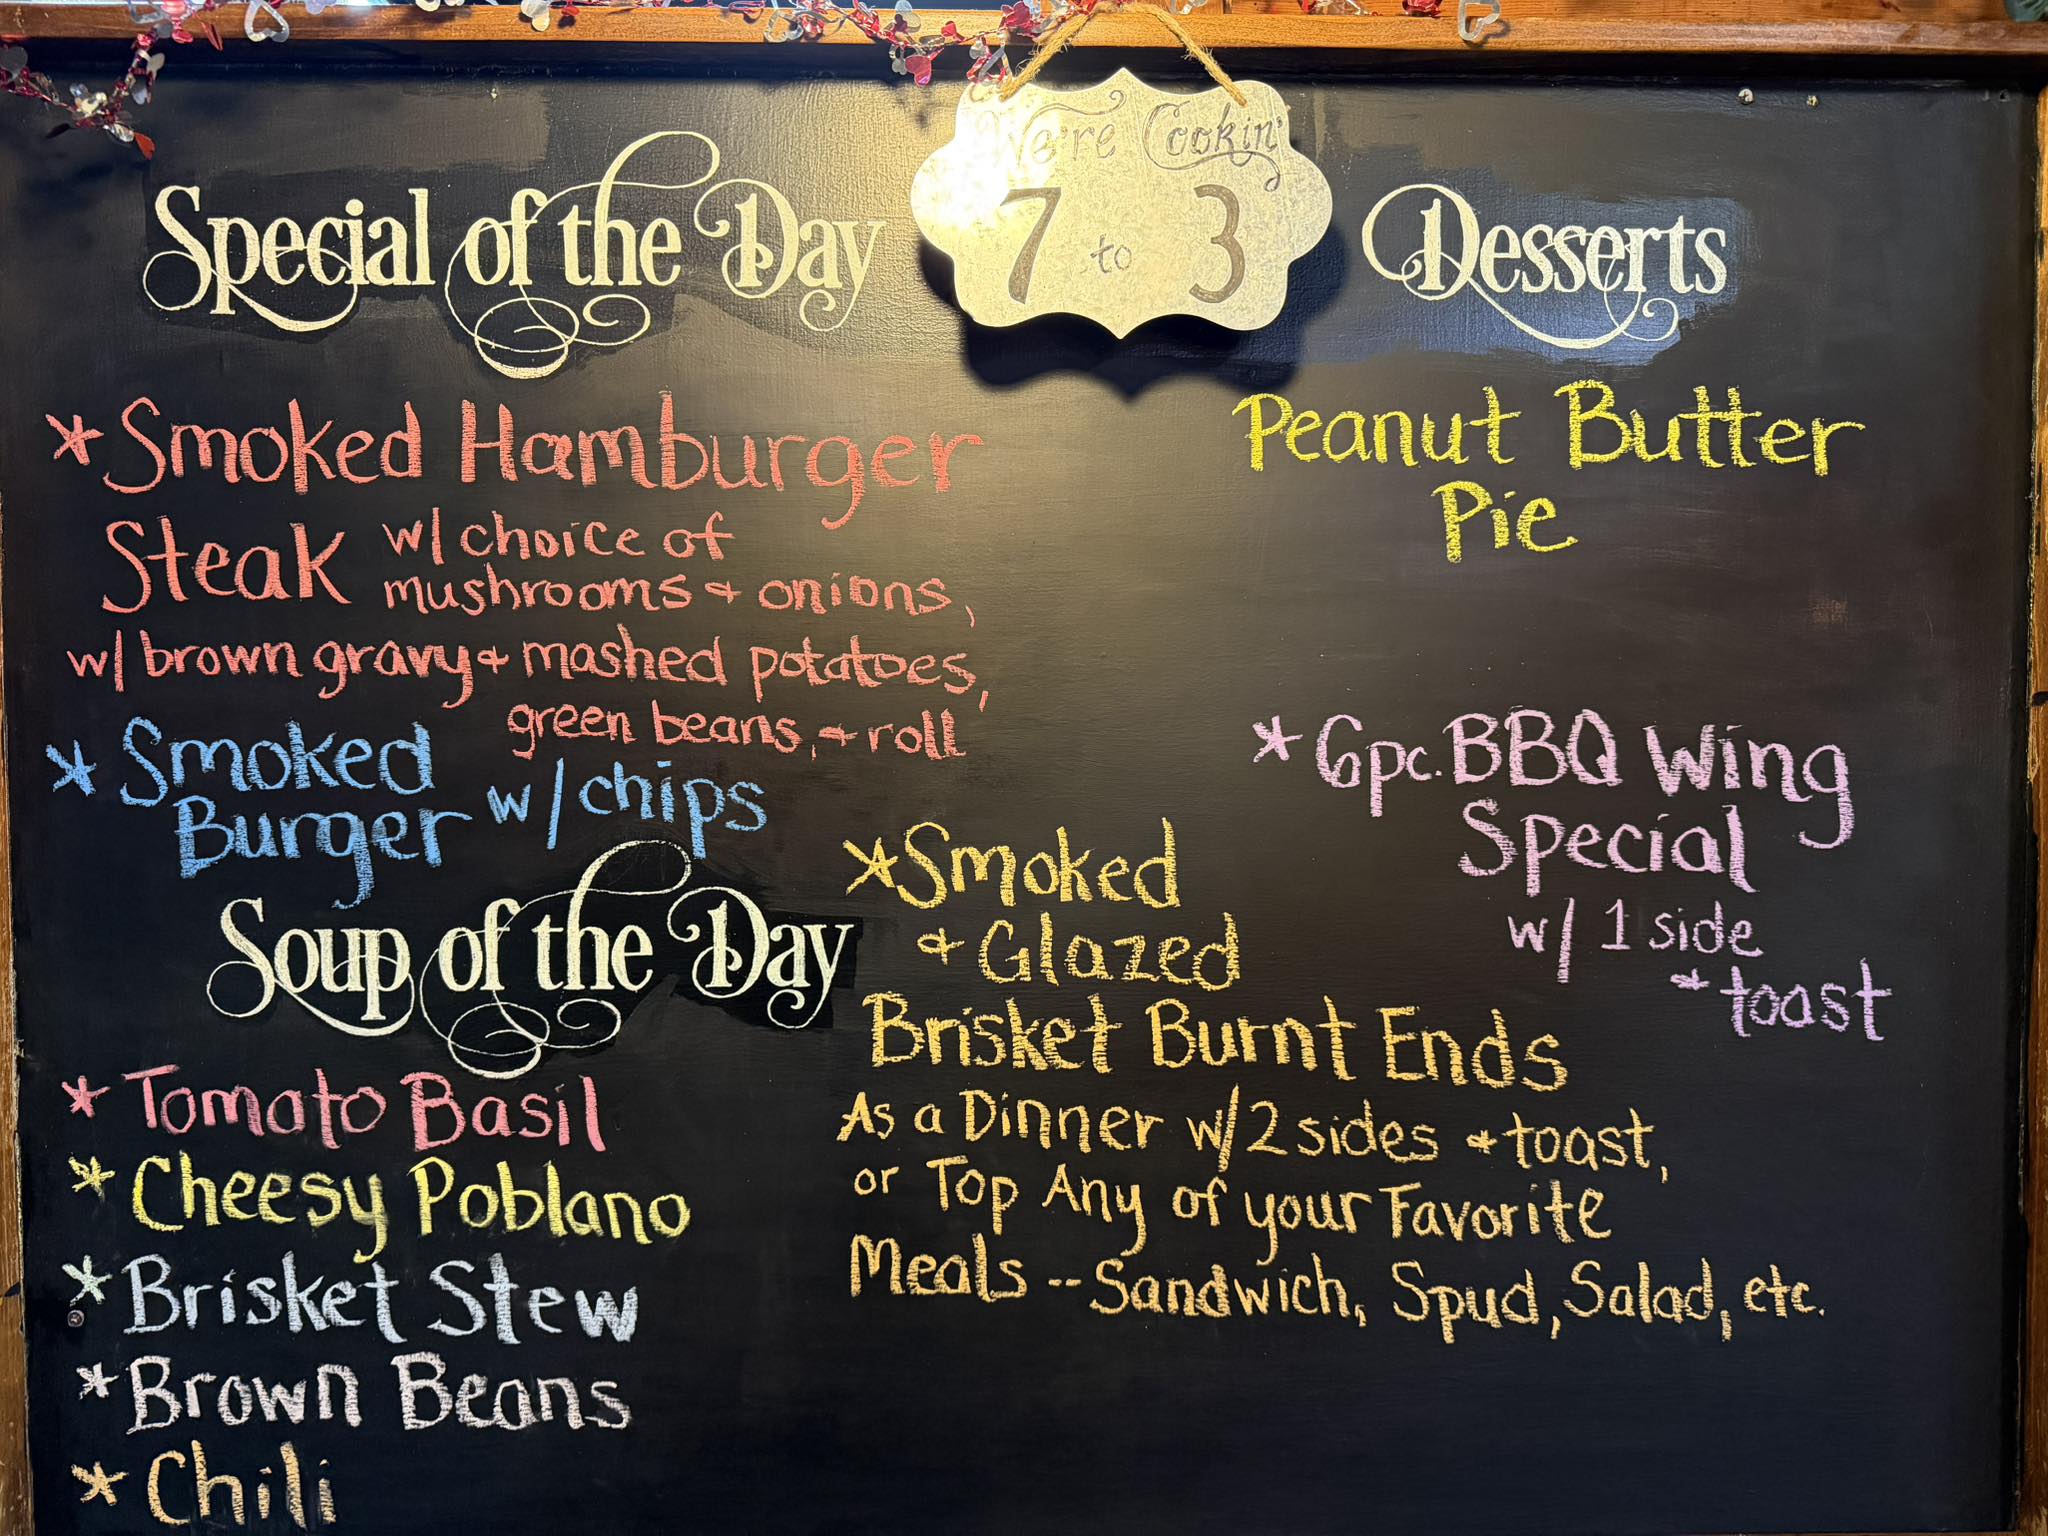 We're Cookin'
7 to 3
Special of the Day
*Smoked Hamburger
Steak w/ choice of
mushrooms + onions,
w/ brown gravy + mashed potatoes,
green beans, + roll
* Smoked
Burger w/ chips
Soup of the Day
* Tomato Basil
* Cheesy Poblano
* Brisket Stew
* Brown Beans
* Chili
Desserts
Peanut Butter
Pie
* 6pc. BBQ Wing
Special
w/ 1 side
+ toast
*Smoked
+ Glazed
Brisket Burnt Ends
As a Dinner w/ 2 sides + toast,
or Top Any of your Favorite
Meals -- Sandwich, Spud, Salad, etc.